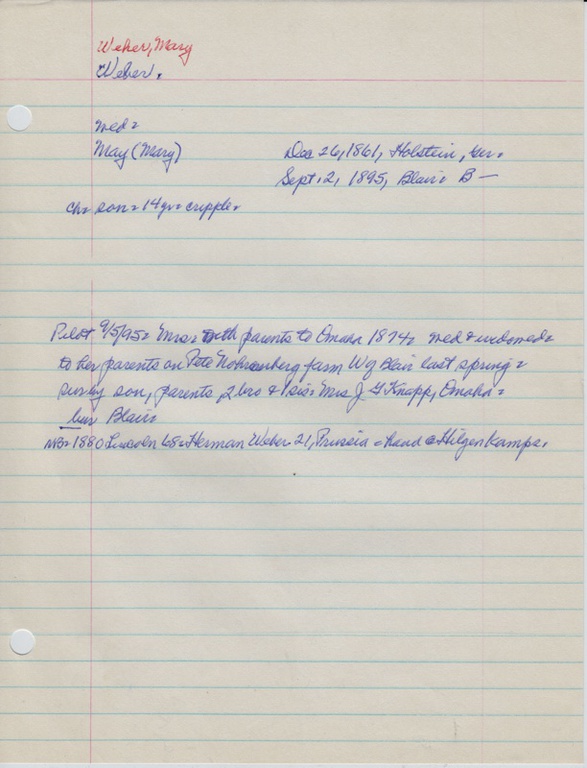 Weber, Mary
Weber.
med=
May (Mary)
Dec 26, 1861, Holstein, Ger=
Sept. 2, 1895, Blair= B—
ch= son= 14yr= cripple=
Pilot 9/5/95= Mrs= with parents to Omaha 1874= wed & widowed=
to her parents on Pete farm W of Blair last spring=
surv by son, parents, 2 bro & 1 sis= Mrs J G Knapp, Omaha=
bur Blair=
NB= 1880 Lincoln 68= Herman Weber 21, Prussia = hand @ Hilgenkamps.